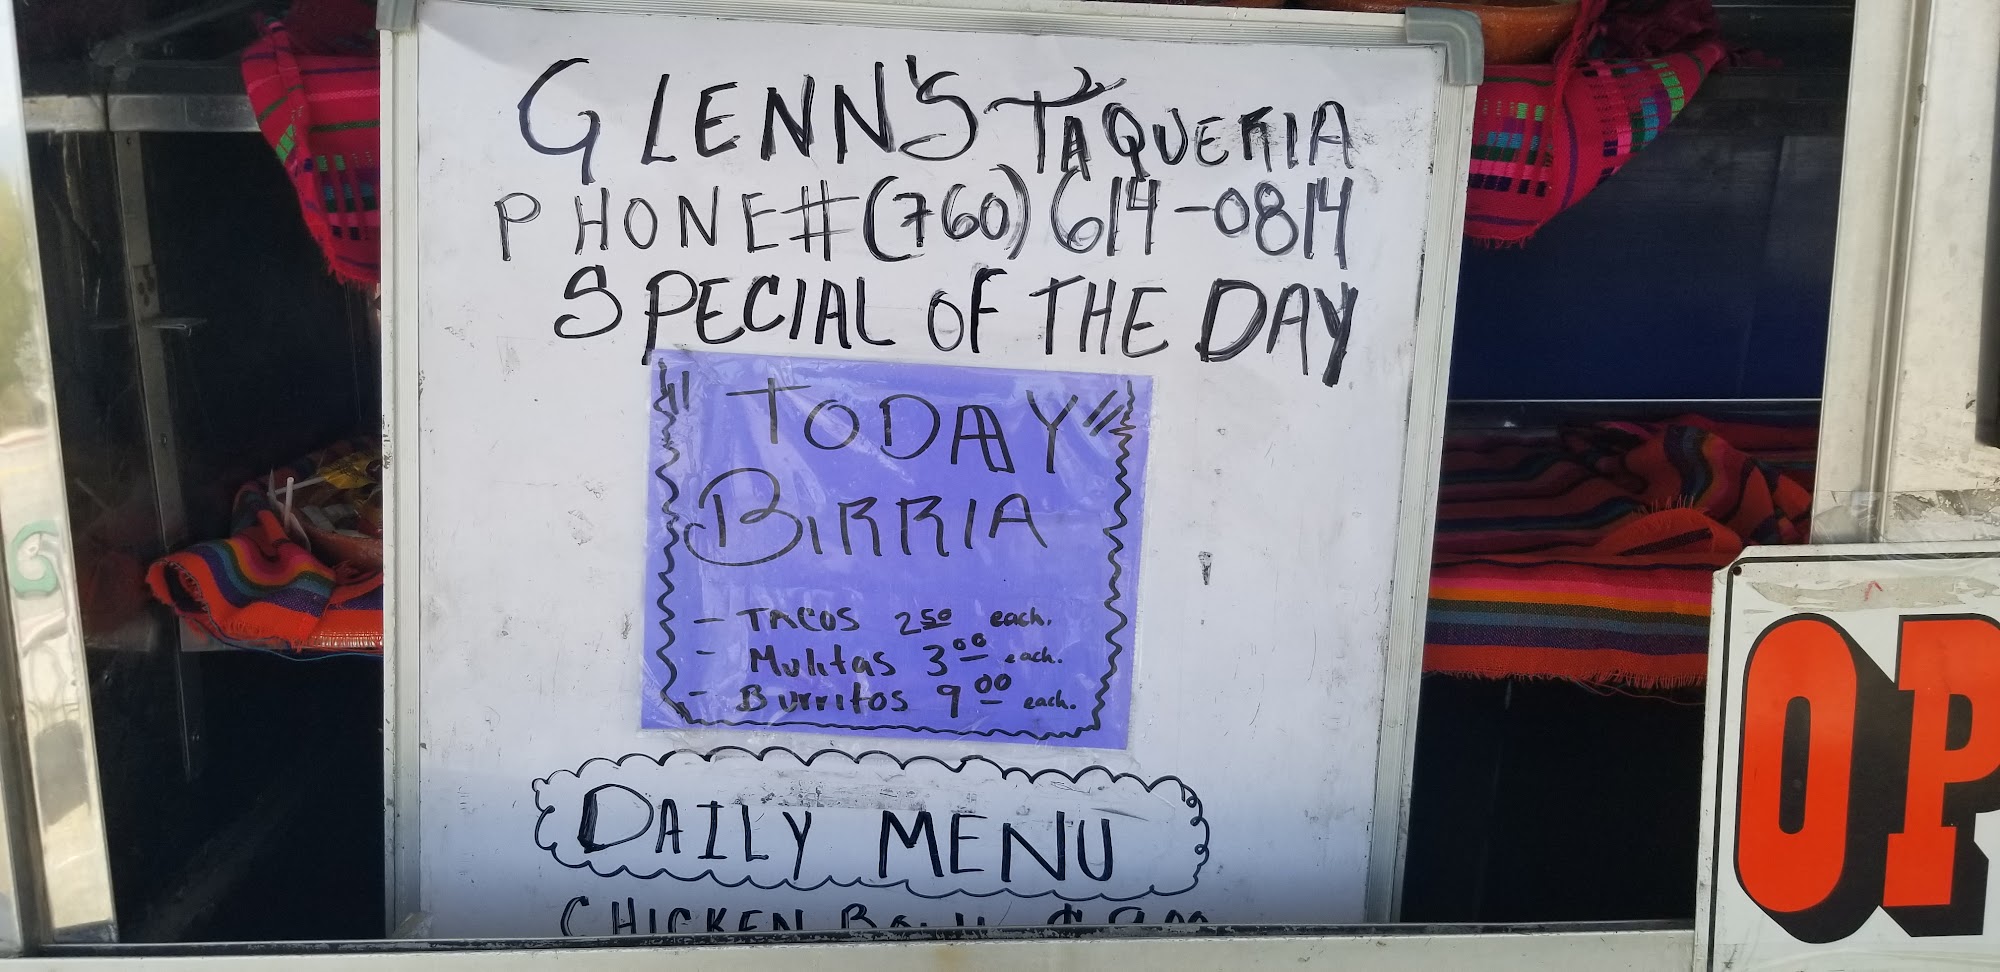 GLENN'S TAQUERIA
PHONE# (760) 614-0814
SPECIAL OF THE DAY
"TODAY"
BIRRIA
- TACOS 2 50 each.
- Mulitas 3 00 each.
- Burritos 9 00 each.
DAILY MENU
CHICKEN
OP